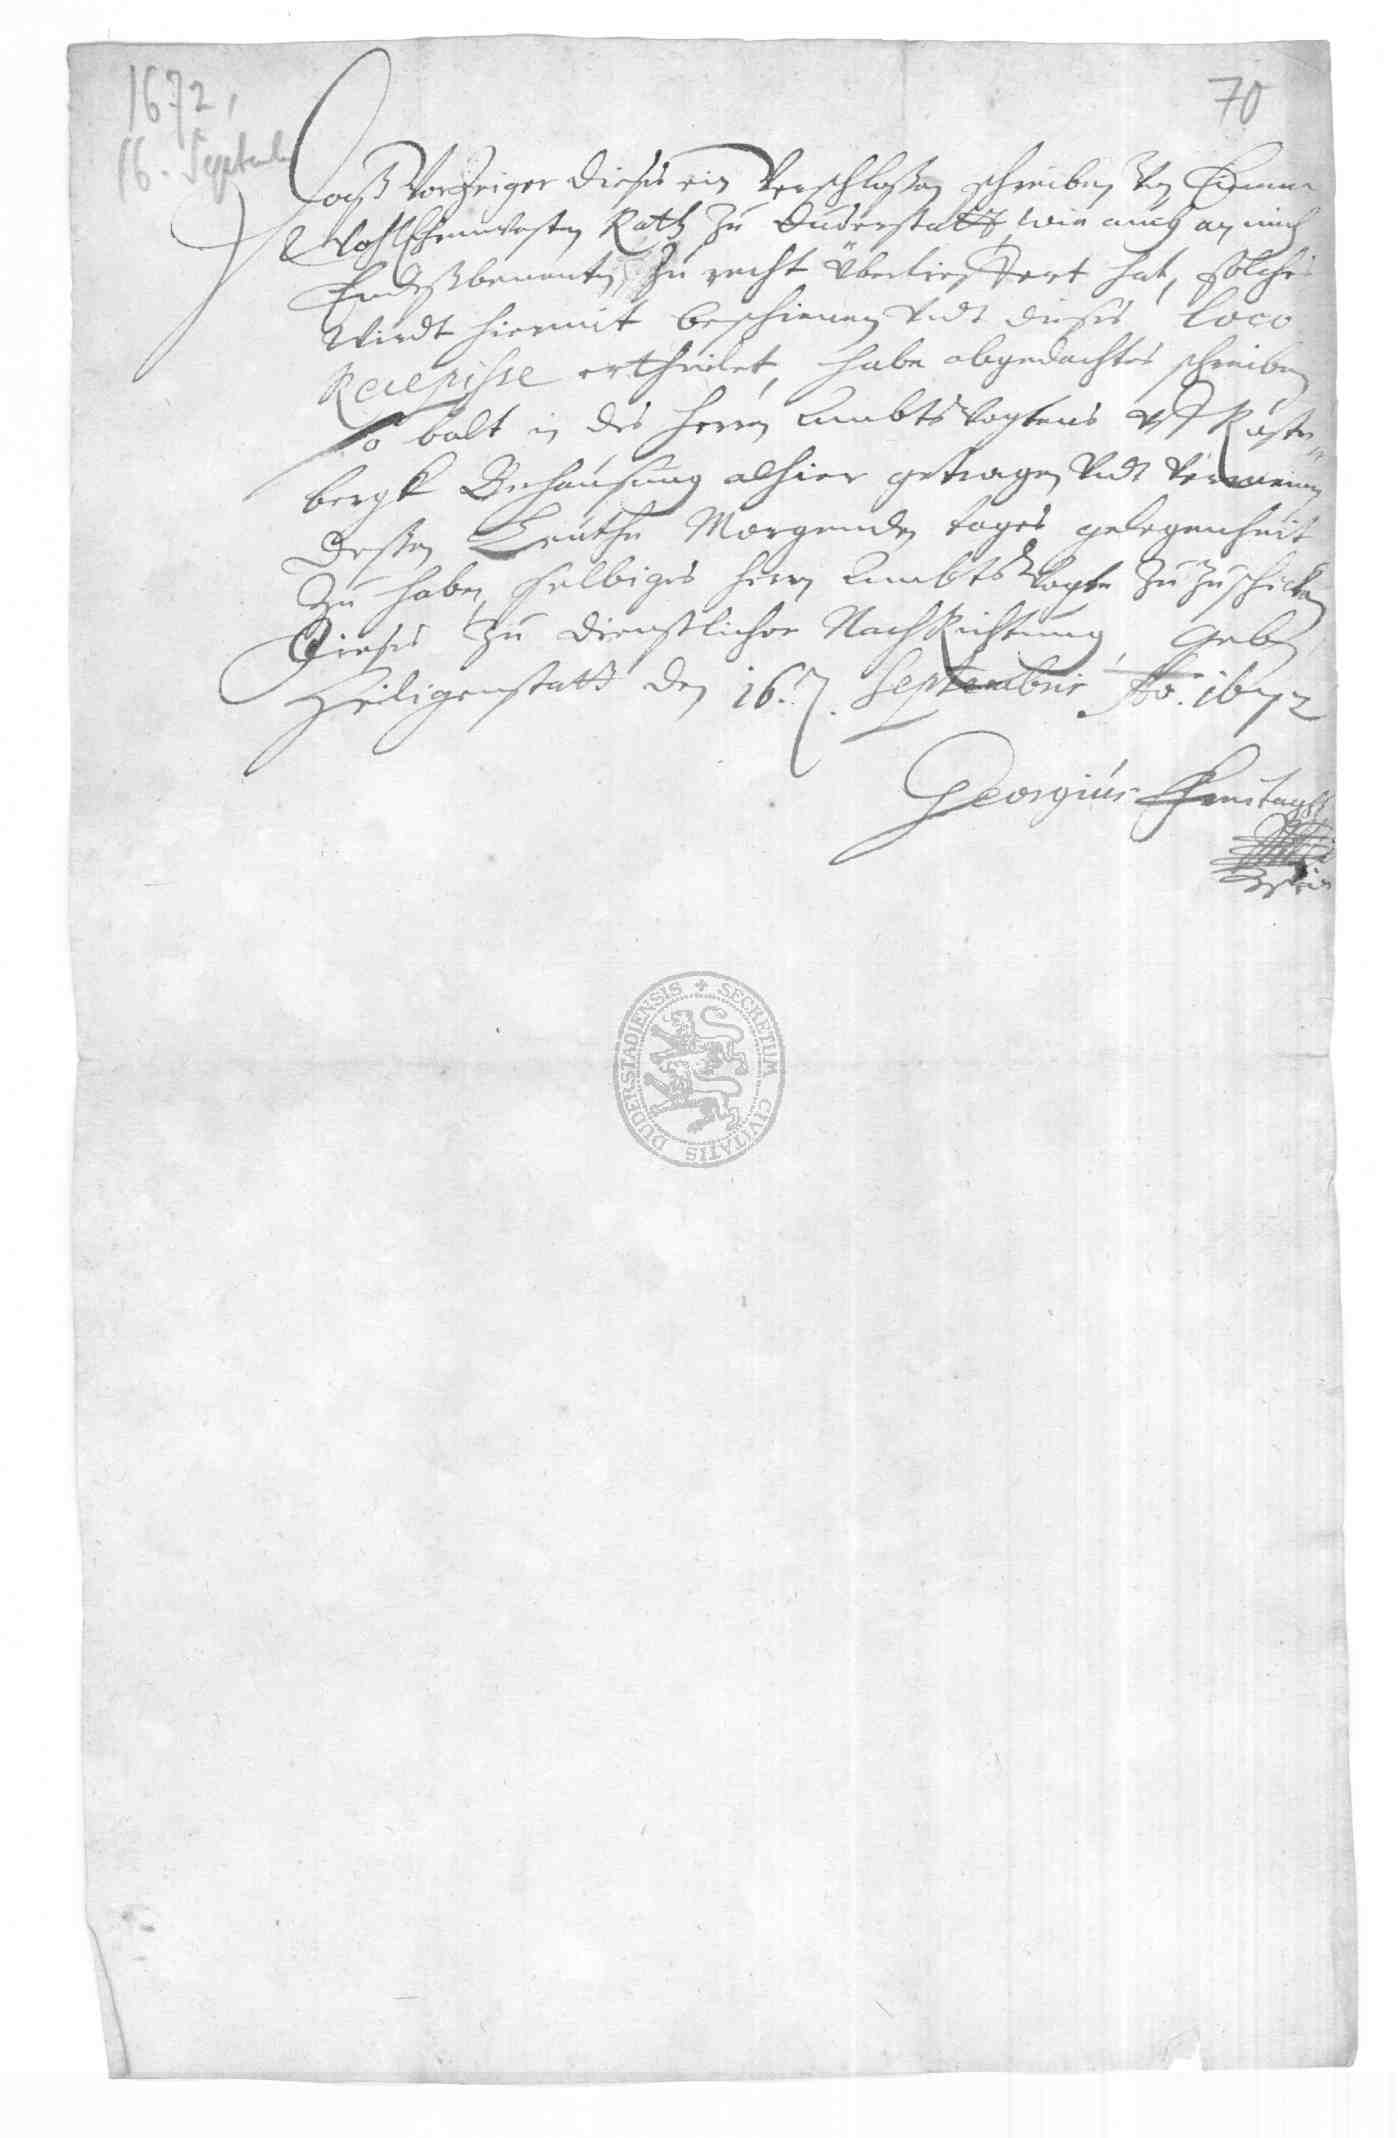 1672,
16. Septemb
70
Daß Vorzeiger dieses ein Verschloßen schreiben Von Einem
WohlEhrnvesten Rath zu Duderstatt, wie auch an mich
Endßbenanten zu recht überlieffert hat, solches
Wirdt hiermit beschienen Undt dieses loco
Recepisse ertheilet, habe abgedachtes schreiben
So balt in des Herrn Ambts Vogtens Uff Rüste
bergk Behausung alhier getragen Undt Vermeinen
deßen Leuthe Morgenden tages gelegenheit
Zu haben, selbiges Herrn Ambts Vogte Zu Zuschicken
Dieses Zu dienstlicher NachRichtung, Geben
Heiligenstatt den 16. 7. Septembris Ao. 1672
Georgius
SECRETUM CIVITATIS DUDERSTADIENSIS